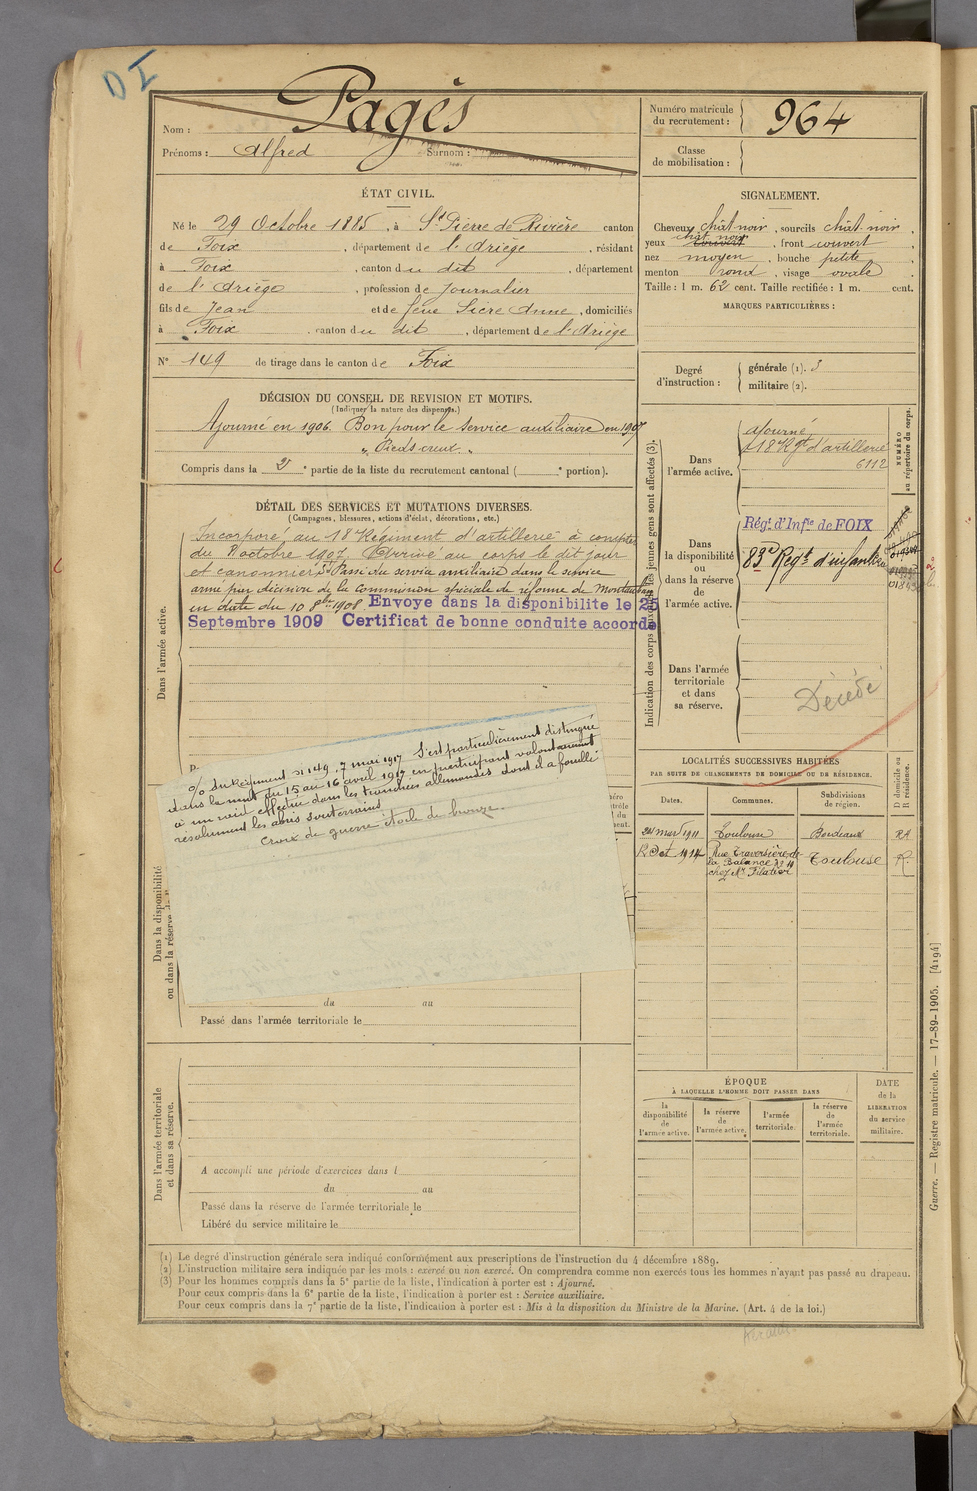 DI
Nom : Pagès
Prénoms : Alfred Surnom :
Numéro matricule
du recrutement : 964
Classe
de mobilisation :
ÉTAT CIVIL.
Né le 29 Octobre 1885, à St Pierre de Rivière canton
de Foix, département de l'Ariège, résidant
à Foix, canton du dit, département
de l'Ariège, profession de Journalier
fils de Jean et de feue Sicre Anne, domiciliés
à Foix, canton du dit, département de l'Ariège
N° 149 de tirage dans le canton de Foix
SIGNALEMENT.
Cheveux chât-noir, sourcils chât-noir,
yeux chât noir, front couvert,
nez moyen, bouche petite,
menton rond, visage ovale
Taille : 1 m. 62 cent. Taille rectifiée : 1 m. cent.
MARQUES PARTICULIÈRES :
Degré
d'instruction :
générale (1). 3
militaire (2).
DÉCISION DU CONSEIL DE REVISION ET MOTIFS.
(Indiquer la nature des dispenses.)
Ajourné en 1906. Bon pour le service auxiliaire en 1907
„ Pieds creux „
Compris dans la 2e partie de la liste du recrutement cantonal ( e portion).
DÉTAIL DES SERVICES ET MUTATIONS DIVERSES.
(Campagnes, blessures, actions d'éclat, décorations, etc.)
Dans l'armée active.
Incorporé au 18e Régiment d'artillerie à compter
du 8 octobre 1907. Arrivé au corps le dit jour
et canonnier Passé du service auxiliaire dans le service
armé par décision de la Commission spéciale de réforme de Montauban
en date du 10 8bre 1908. Envoye dans la disponibilite le 25
Septembre 1909 Certificat de bonne conduite accordé
Indication des corps auxquels les jeunes gens sont affectés (3).
NUMÉRO
au répertoire du corps.
Dans
l'armée active.
Ajourné
18e Rgt d'artillerie
6112
Dans
la disponibilité
ou
dans la réserve
de
l'armée active.
Régt. d'Infie de FOIX
83e Régt d'infanterie
Dans l'armée
territoriale
et dans
sa réserve.
Décédé
Dans la disponibilité
ou dans la réserve
O/ du Régiment n 149, 7 mai 1917 S'est particulièrement distingué
dans la nuit du 15 au 16 avril 1917 en participant volontairement
à un raid effectué dans les tranchées allemandes dont il a fouillé
résolument les abris souterrains
Croix de guerre étoile de bronze.
du au
Passé dans l'armée territoriale le
LOCALITÉS SUCCESSIVES HABITÉES
PAR SUITE DE CHANGEMENTS DE DOMICILE OU DE RÉSIDENCE.
Dates. Communes. Subdivisions
de région. D domicile ou
R résidence.
24 mars 1911 Toulouse Bordeaux RA
12 Oct 1914 Rue Traversière de
la Balance N° 19
chez Mr Filatier Toulouse R.
Dans l'armée territoriale
et dans sa réserve.
A accompli une période d'exercices dans l
du au
Passé dans la réserve de l'armée territoriale le
Libéré du service militaire le
ÉPOQUE
À LAQUELLE L'HOMME DOIT PASSER DANS
la
disponibilité
de
l'armée active.
la réserve
de
l'armée active.
l'armée
territoriale.
la réserve
de
l'armée
territoriale.
DATE
de la
LIBÉRATION
du service
militaire.
(1) Le degré d'instruction générale sera indiqué conformément aux prescriptions de l'instruction du 4 décembre 1889.
(2) L'instruction militaire sera indiquée par les mots : exercé ou non exercé. On comprendra comme non exercés tous les hommes n'ayant pas passé au drapeau.
(3) Pour les hommes compris dans la 5e partie de la liste, l'indication à porter est : Ajourné.
Pour ceux compris dans la 6e partie de la liste, l'indication à porter est : Service auxiliaire.
Pour ceux compris dans la 7e partie de la liste, l'indication à porter est : Mis à la disposition du Ministre de la Marine. (Art. 4 de la loi.)
Guerre. — Registre matricule. — 17-89-1905. [4194]